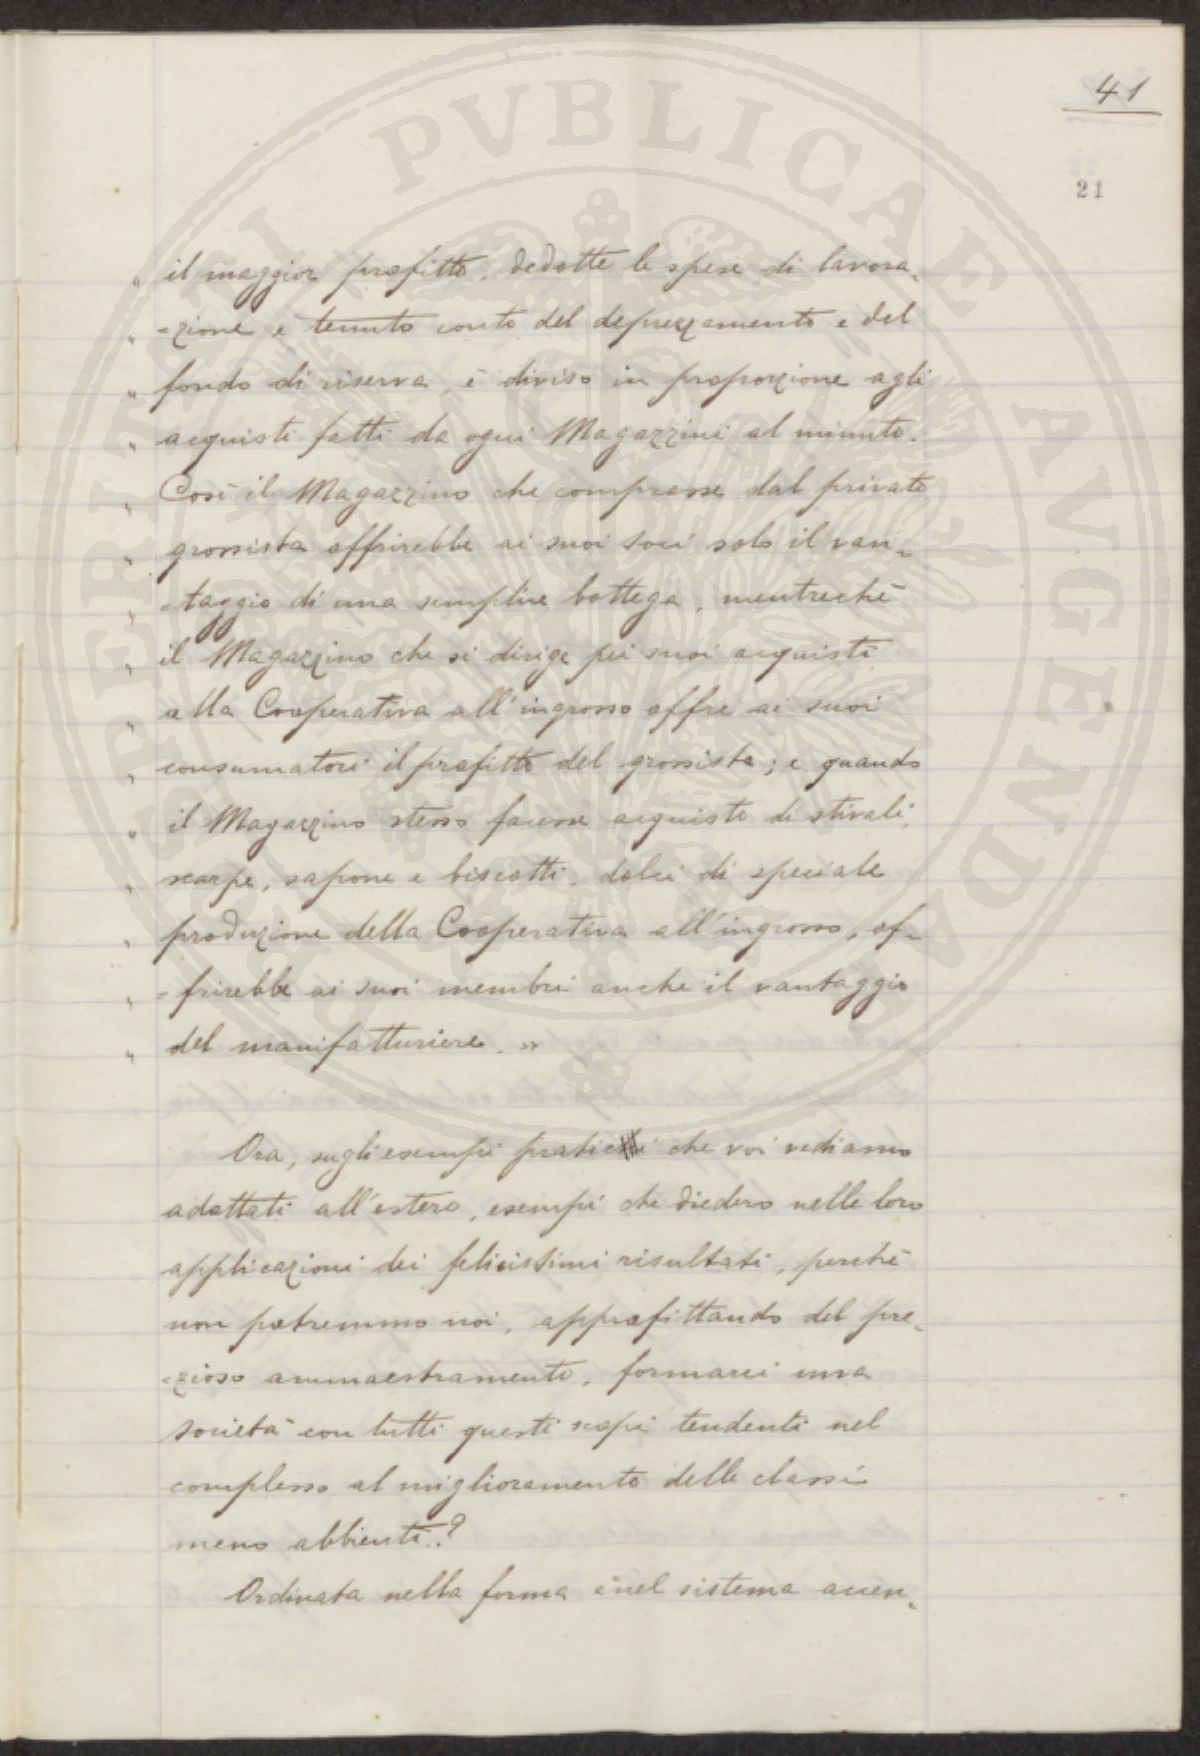 41
21
„ il maggior profitto, dedotte le spese di lavora-
„ -zione e tenuto conto del deprezzamento e del
„ fondo di riserva, è diviso in proporzione agli
„ acquisti fatti da ogni Magazzini al minuto.
„ Così il Magazzino che comprasse dal privato
„ grossista offrirebbe ai suoi soci solo il van-
„ -taggio di una semplice bottega, mentrechè
„ il Magazzino che si dirige pei suoi acquisti
„ alla Cooperativa all'ingrosso offre ai suoi
„ consumatori il profitto del grossista; e quando
„ il Magazzino stesso facesse acquisto di stivali,
„ scarpe, sapone e biscotti, dolci di speciale
„ produzione della Cooperativa all'ingrosso, of-
„ -frirebbe ai suoi membri anche il vantaggio
„ del manifatturiere. „
Ora, sugli esempi pratici che voi vediamo
adottati all'estero, esempi che diedero nelle loro
applicazioni dei felicissimi risultati, perchè
non potremmo noi, approfittando del pre-
-zioso ammaestramento, formarci una
società con tutti questi scopi tendenti nel
complesso al miglioramento delle classi
meno abbienti?
Ordinata nella forma e nel sistema accen-
PROSPERITATI PVBLICAE AVGENDAE